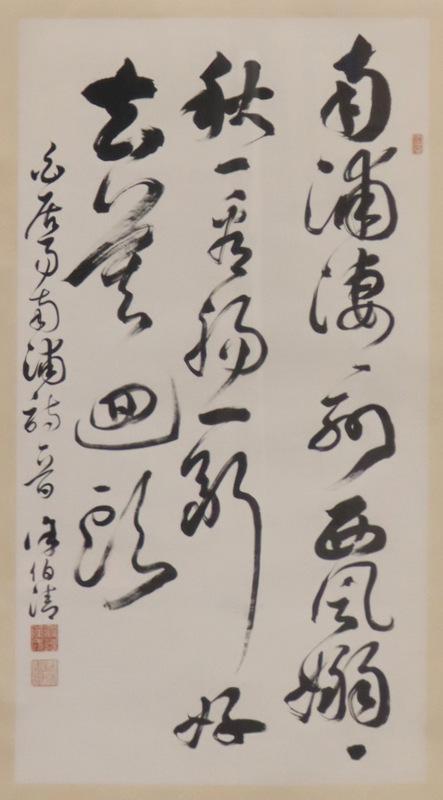 南浦淒〻別西風嫋〻
秋一看腸一斷好
去莫迴頭
白居易南浦詩一首 徐伯清